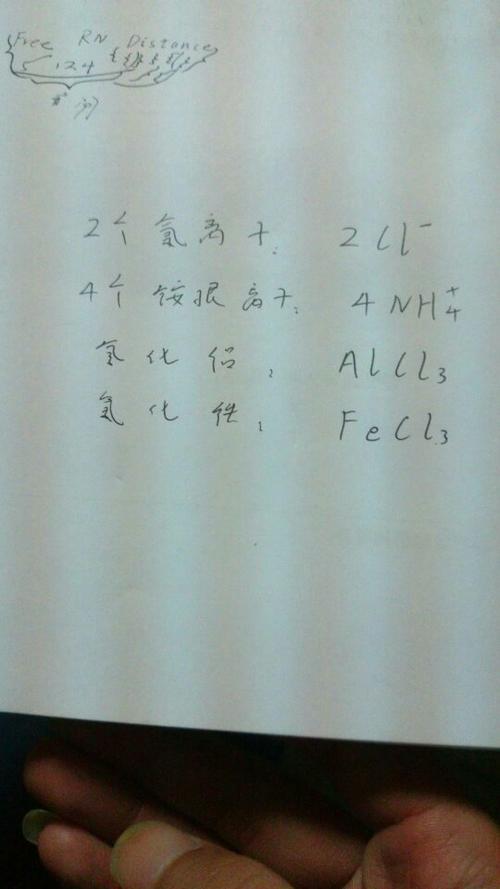 Free RN Distance
2个氯离子: 2Cl⁻
4个铵根离子: 4NH₄⁺
氯化铝: AlCl₃
氯化铁: FeCl₃